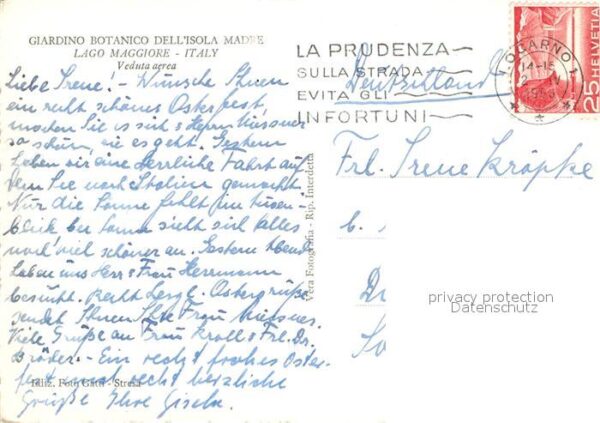 GIARDINO BOTANICO DELL'ISOLA MADRE
LAGO MAGGIORE - ITALY
Veduta aerea
Liebe Irene! - Wünsche Ihnen
ein recht schönes Osterfest,
machen Sie es sich u. Herrn Meissner
so schön, wie es geht. Gestern
haben wir eine herrliche Fahrt auf
dem See nach Italien gemacht.
Nur die Sonne fehlt im Augen-
blick bei Sonne sieht sich alles
noch viel schöner an. Gestern Abend
haben uns Herr u. Frau Herrmann
besucht. Recht herzl. Ostergrüße
sendet Ihnen Ihre Frau Meissner.
Viele Grüße an Frau Kroll u. Frl. Dr.
Bröder. - Ein recht frohes Oster-
fest und recht herzliche
Grüße Ihre Gisela.
Ediz. Foto Gatti - Stresa
Vera Fotografia - Rip. Interdetta
LA PRUDENZA
SULLA STRADA
EVITA GLI
INFORTUNI
LOCARNO 1
14-15
HELVETIA
25
Deutschland
Frl. Irene Kröpke
privacy protection
Datenschutz